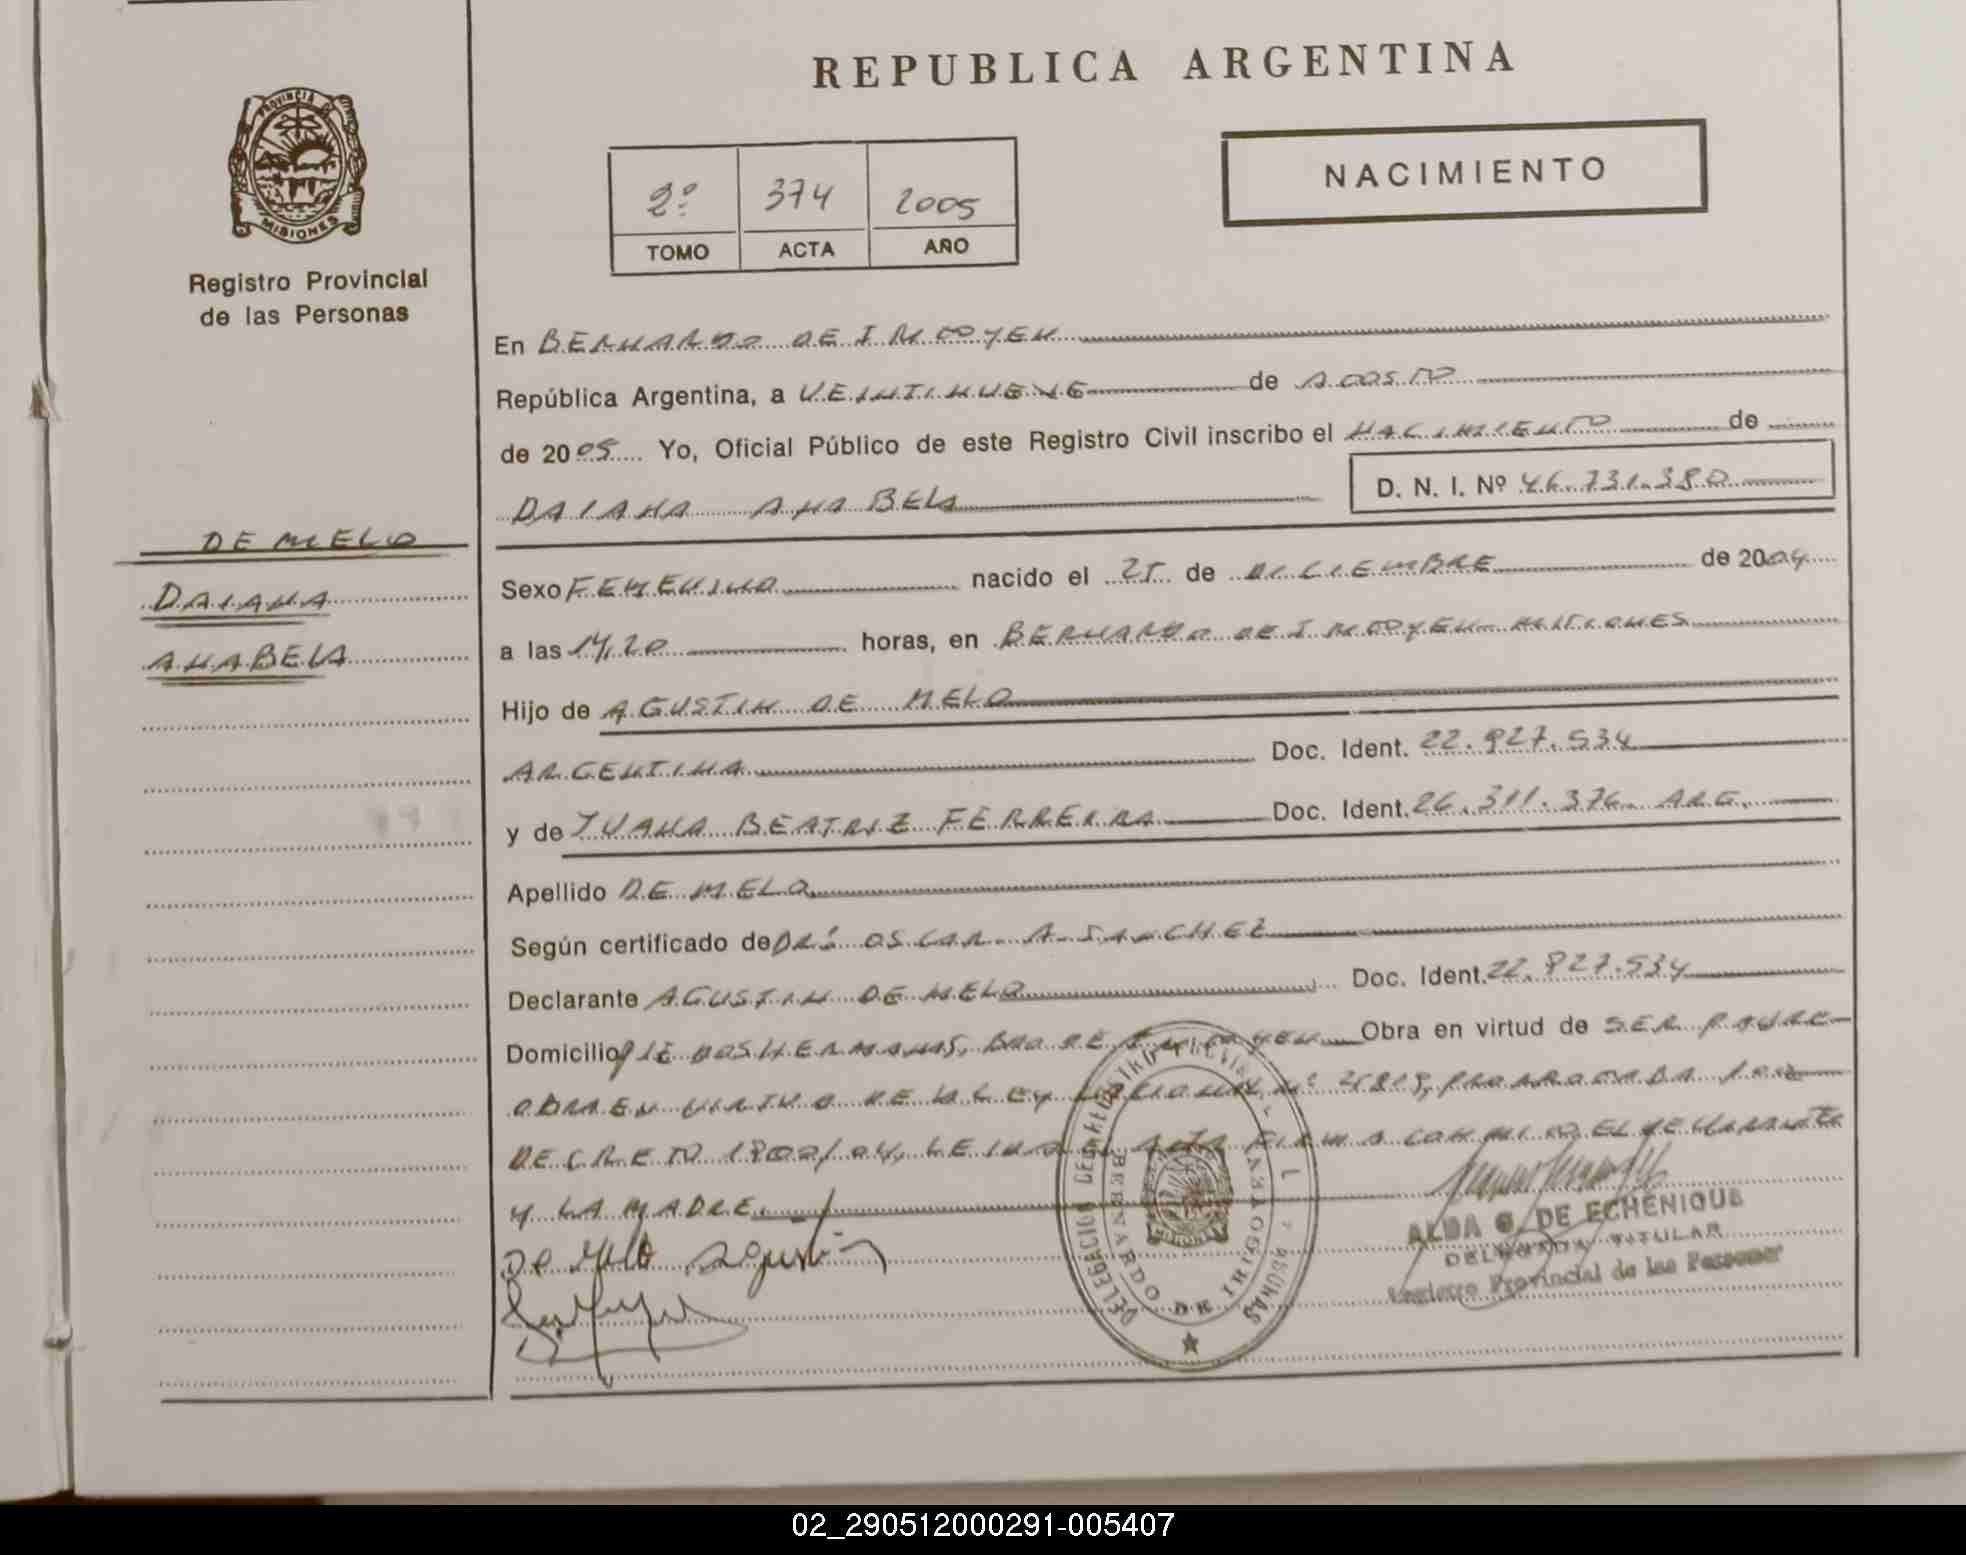 REPUBLICA ARGENTINA
PROVINCIA DE
MISIONES
Registro Provincial
de las Personas
2º 374 2005
TOMO ACTA AÑO
NACIMIENTO
En BERNARDO DE IRIGOYEN
República Argentina, a VEINTINUEVE de AGOSTO
de 2005 Yo, Oficial Público de este Registro Civil inscribo el NACIMIENTO de
DAIANA ANABELA D. N. I. Nº 46.731.380
DE MELO
DAIANA
ANABELA
Sexo FEMENINO nacido el 25 de DICIEMBRE de 2004
a las 14,20 horas, en BERNARDO DE IRIGOYEN - MISIONES
Hijo de AGUSTIN DE MELO
ARGENTINA Doc. Ident. 22.927.534
y de JUANA BEATRIZ FERREIRA Doc. Ident. 26.311.376 ARG.
Apellido DE MELO
Según certificado de DR: OSCAR A. SANCHEZ
Declarante AGUSTIN DE MELO Doc. Ident. 22.927.534
Domicilio DOS HERMANAS, BDO DE IRIGOYEN Obra en virtud de SER PADRE
OBRA EN VIRTUD DE LA LEY NACIONAL Nº 25819, PRORROGADA POR
DECRETO 1802/04, LEIDA EL ACTA FIRMA CONMIGO, EL DECLARANTE
Y LA MADRE.
De Melo Agustin
DELEGACION DEL REGISTRO PROVINCIAL
BERNARDO DE IRIGOYEN
ALBA G. DE ECHENIQUE
DELEGADA TITULAR
Registro Provincial de las Personas
02_290512000291-005407